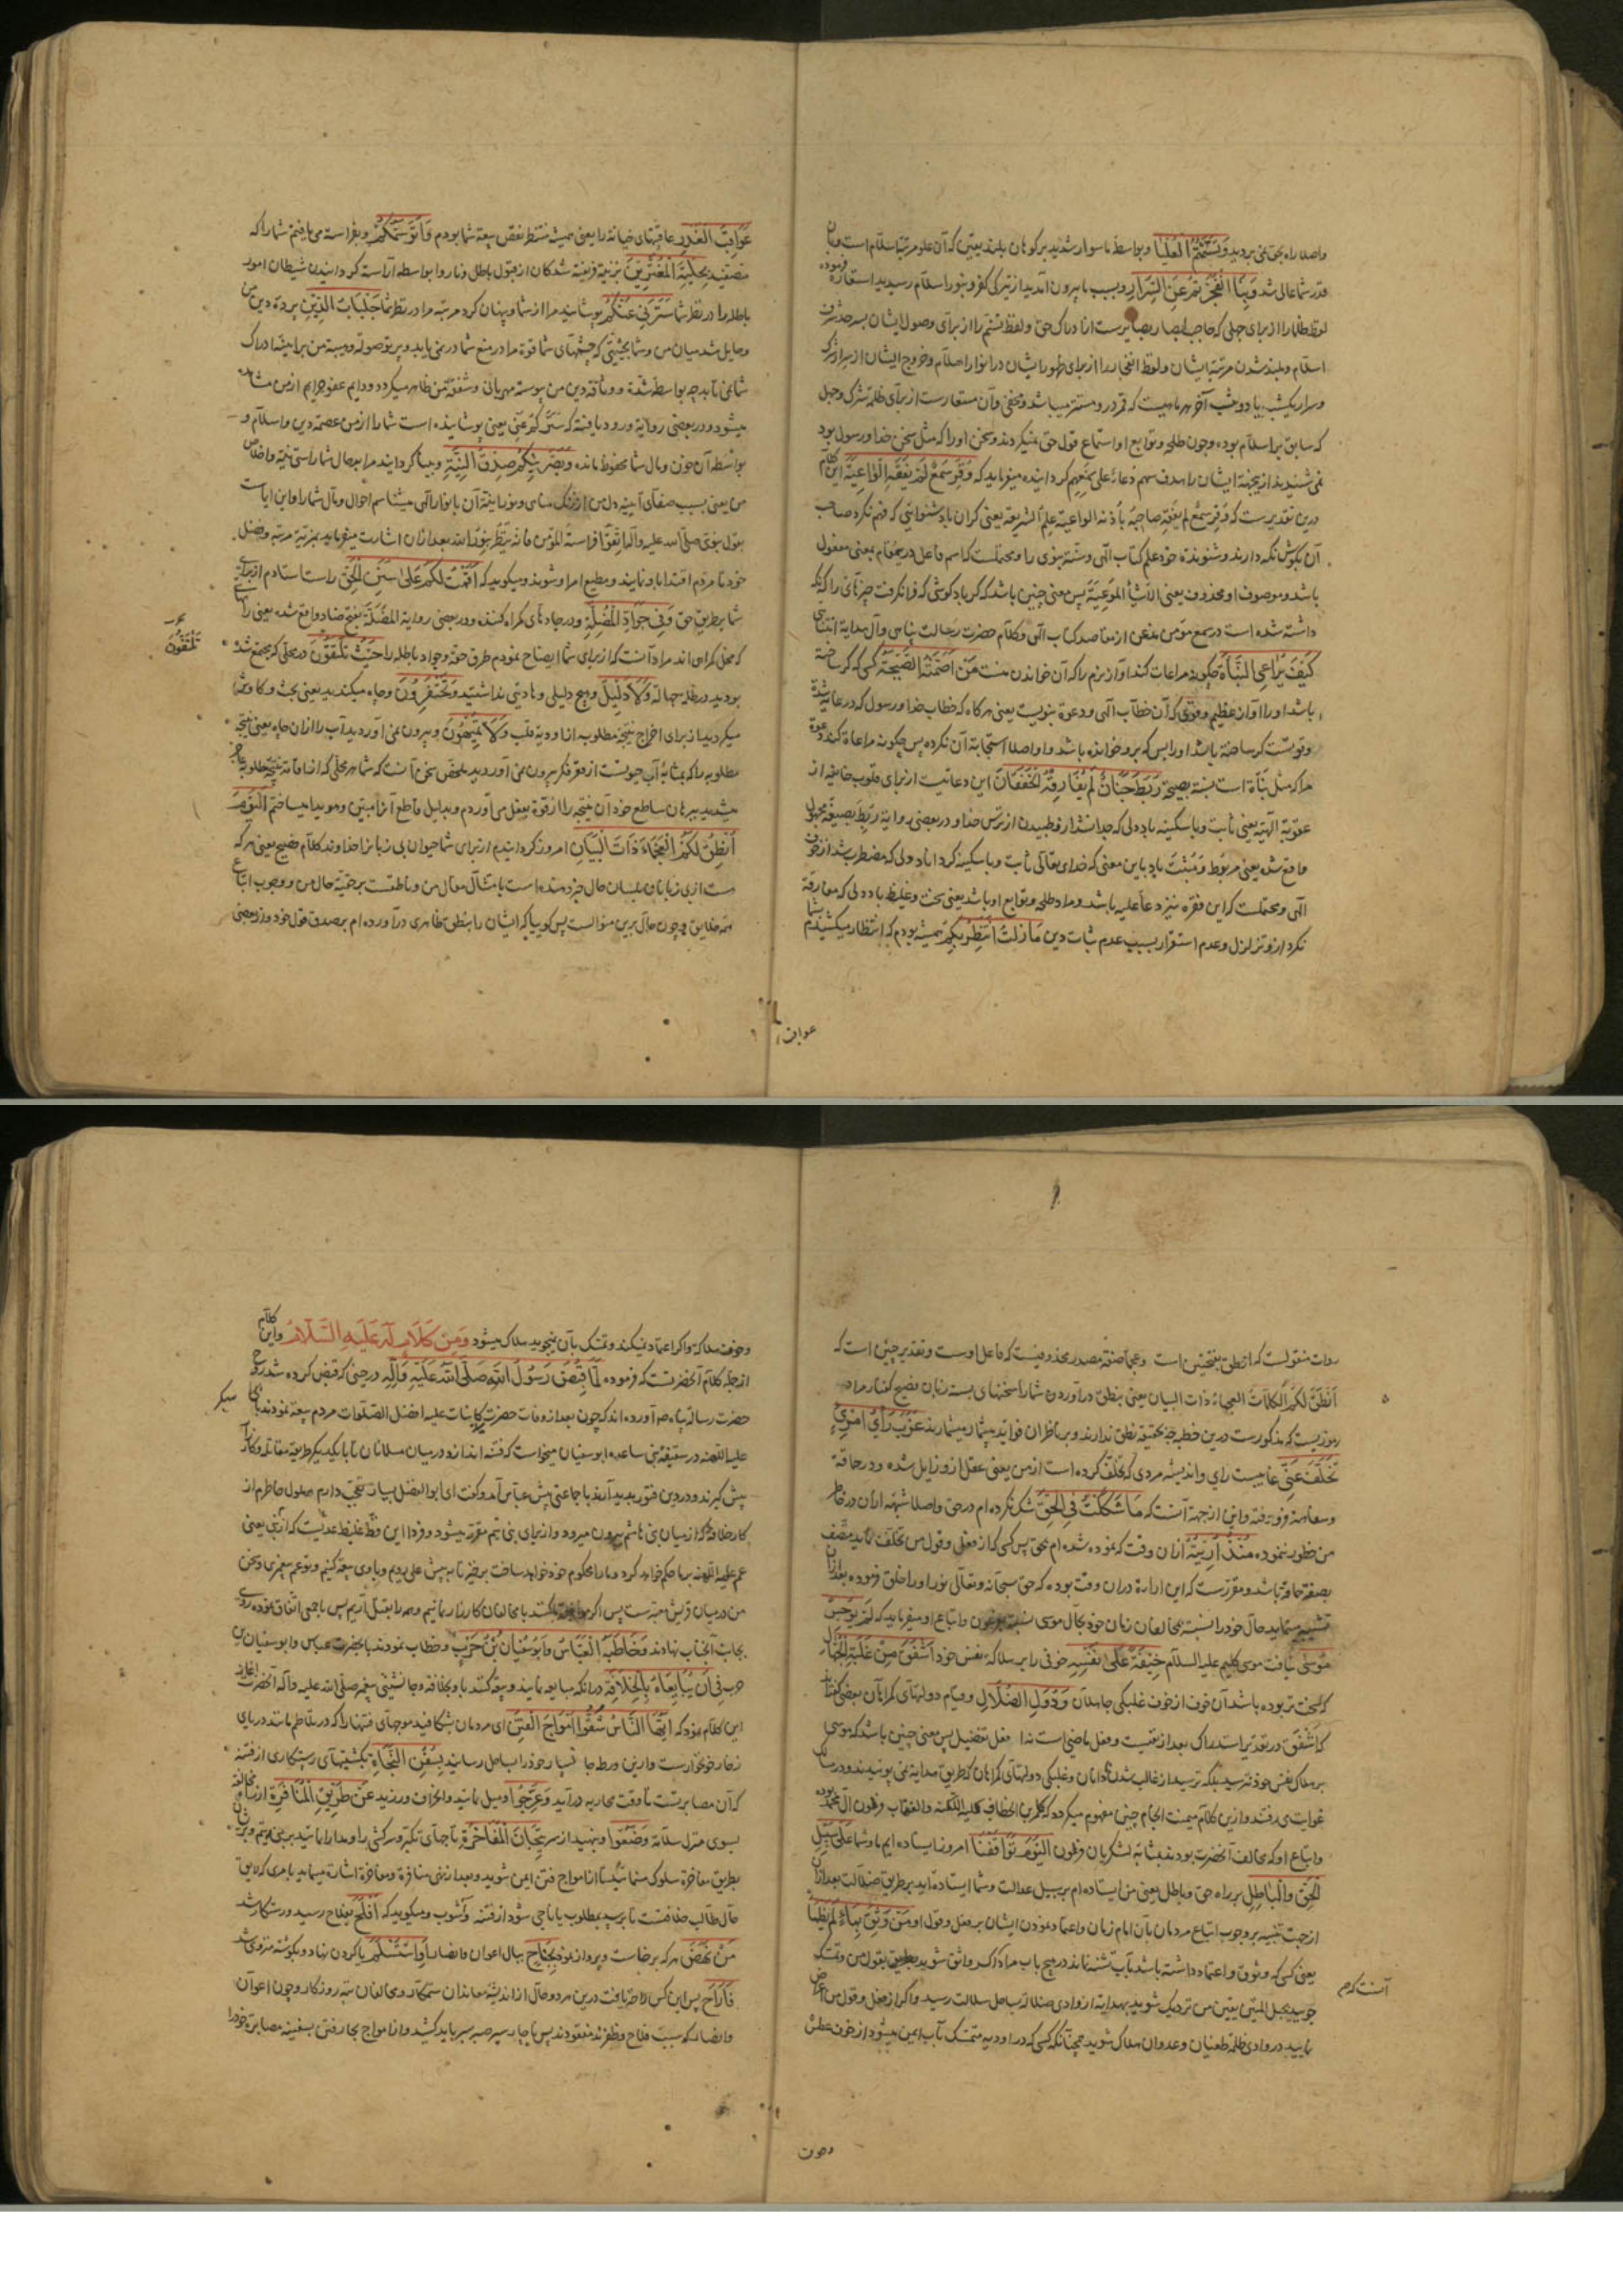 واصلا راه بحق نمی بردید وَتَسَنَّمْتُمُ الْعَلْیَا وبواسطه ما سوار شدید بر کوهان بلند یعنی که آن علو مرتبه اسلام است و بآن
قدر شما عالی شد وَبِنَا انْفَجَرْتُمْ عَنِ السِّرَارِ وبسبب ما بیرون آمدید از تیرکی کفر و بنور اسلام رسیدید استعاره فرموده
لفظ ظلما را از برای جهلی که حاجب ابصار بصایرست از ادراک حق و لفظ تسنم را از برای وصول ایشان بسرحد شرف
اسلام وبلند شدن مرتبه ایشان ولفظ انفجار را از برای ظهور ایشان در انوار اسلام وخروج ایشان از سرار شرک
وسرار یکشب یا دو شب آخر هر ماهیست که قمر درو مستتر میباشد ومخفی وآن مستعارست از برای ظلمة شرک وجهل
که سابق بر اسلام بوده وچون طلحه وتوابع او استماع قول حق نمیکردند وسخن اورا که مثل سخن خدا ورسول بود
نمی شنیدند ازینجهة ایشان را هدف سهم دعاء علی سَمْعِهِم کردانیده میفرماید که وُقِرَ سَمْعٌ لَمْ یَفْقَهِ الْوَاعِیَةَ این کلام
درین تقدیرست که وُقِرَ سمع لم یفقه صاحبه باُذنه الواعیة علم الشریعة یعنی کران باد شنوایی که فهم نکرد صاحب
آن بکوش نکه دارنده وشنونده خود علم کتاب الهی وسنة نبوی را ومحتملست که اسم فاعل درینمقام بمعنی مفعول
باشد وموصوف او محذوف یعنی الاشیاءَ الموعیة پس معنی چنین باشد که کر باد کوشی که فرا نکرفت چیزهای را که نکه
داشته شده است در سمع مؤمن مذعن از مقاصد کتاب الهی وکلام حضرت رسالت پناهی وآل هدایة انتباهی
کَیْفَ یُرَاعِی النَّبْأَةَ چکونه مراعات کند آواز نرم را که آن خواندن منست مَنْ اَصَمَّتْهُ الصَّیْحَةُ کسی که کر ساخته
باشد اورا آواز عظیم وقوی که آن خطاب الهی ودعوة نبویست یعنی هرکاه که خطاب خدا ورسول که در غایة شدة
وقوتست کر ساخته باشد اورا پس که برو خوانده باشد واو اصلا استجابة آن نکرده پس چکونه مراعاة کند دعوة
مرا که مثل نبأة است نسبة بصیحة رَبَطَ جَنَانٌ لَمْ یُفَارِقْهُ الْخَفَقَانُ این دعائیست از برای قلوب خایفه از
عقوبة الهیه یعنی ثابت وبا سکینه باد دلی که جدا نشد ازو طپیدن از ترس خدا و در بعضی روایة رُبِطَ بصیغه مجهول
واقع شده یعنی مربوط ومثبت باد باین معنی که خدای تعالی ثابت وبا سکینه کرداناد دلی که مضطرب شد از خوف
الهی ومحتملست که این فقره نیز دعا علیه باشد ومراد طلحه وتوابع او باشد یعنی سخت وغلیظ باد دلی که مفارقة
نکرد ازو تزلزل وعدم استقرار بسبب عدم ثبات دین مَازِلْتُ اَنْتَظِرُ بِکُمْ همیشه بودم که انتظار میکشیدم بشما
عواقب
عَوَاقِبَ الْغَدْرِ عاقبتهای خیانة را یعنی همیشه منتظر نقض بیعة شما بودم وَاَتَوَسَّمُکُمْ وبفراسة می یافتم شما را که
متصفید بِحِلْیَةِ الْمُغْتَرِّینَ بزینة فریفته شدکان از قبول باطل وناروا بواسطه آراسته کردانیدن شیطان امور
باطله را در نظر شما سَتَرَنِی عَنْکُمْ پوشانید مرا از شما وپنهان کرد مرتبه مرا در نظر شما جِلْبَابُ الدِّینِ پرده دین من
وحایل شد میان من وشما بحیثیتی که چشمهای شما قوة مرا در منع شما درنمی یابد
شما نمی تابد
میشود ودر بعضی روایة ورود یافته که سَتَرَکُمْ عَنِّی یعنی پوشانیده است شما را از من عصمة دین واسلام و
بواسطه آن خون ومال شما محفوظ مانده وَبَصَّرَنِیکُمْ صِدْقُ النِّیَّةِ وبینا کردانید مرا بحال شما راستی نیة واخلاص
من یعنی بسبب صفای آیینه دل من از زنک مناهی ونورانیة آن بانوار الهی میشناسم احوال ومآل شما را واین ایماست
بقول نبوی صلی الله علیه وآله اتَّقُوا فراسة المؤمن فانه ینظر بنور الله بعد ازان اشارت میفرماید بمزیة مرتبه وفضل
خود تا مردم اقتدا باو نمایند ومطیع امر او شوند ومیکوید که اَقَمْتُ لَکُمْ عَلیٰ سَنَنِ الْحَقِّ راست استادم از برای
شما بر طریق حق فِی جَوَادِّ الْمُضِلَّةِ ودر جادهای کمراه کننده ودر بعضی روایة المَضَلَّة بفتح ضاد واقع شده یعنی راههایی
که محل کمراهی اند مراد آنست که از برای شما ایضاح نمودم طرق حقه وجواد باطله را حَیْثُ تَلْتَقُونَ در محلی که مجتمع شده
تَلْتَقُونَ
بودید در ظلمة جهالة وَلَا دَلِیلَ وهیچ دلیلی وهادیی نداشتید وَتَحْتَفِرُونَ وچاه میکندید یعنی بحث وکاوش
میکردید از برای اخراج نتیجه مطلوبه از اودیه قلب وَلَا تُمِیهُونَ وبیرون نمی آوردید آب را ازان چاه یعنی نتیجه
مطلوبه را که بمثابه آب حیوتست از قعر فکر بیرون نمی آوردید ملخص سخن آنست که شما هر محلی که از اقامة نتیجه مطلوبه عاجز
میشدید ببرهان ساطع خود آن نتیجه را از قوة بفعل می آوردم وبدلیل قاطع آنرا مبین ومؤید میساختم اَلْیَوْمَ
اُنْطِقُ لَکُمُ الْعَجْمَاءَ ذَاتَ الْبَیَانِ امروز کردانیدم از برای شما حیوان بی زبانرا خداوند کلام فصیح یعنی هر که
هست از بی زبانان بلسان حال خبر دهنده است بامثال مقال من وناطقست بر حقیة حال من ووجوب اتباع
همه خلایق وچون حال برین منوالست پس کوییا که ایشان را بنطق ظاهری درآورده ام بر صدق قول خود ودر بعضی
روات منقولست که اَنطق بفتحتین است وعجماء صفة مصدر محذوفیست که فاعل اوست وتقدیر چنین است که
اَنطَقَ لکم الکلمات العجماءُ ذات البیان یعنی بنطق درآوردن شما را سخنهای بسته زبان فصیح کفتار مراد
رموزیست که مذکورست درین خطبه که بحقیقة نطق ندارند وبر ناظران فواید بیشمار میشمارند عَزَبَ رَأْیُ امْرِیءٍ
تَخَلَّفَ عَنِّی غایبست رای واندیشه مردی که تخلف کرده است از من یعنی عقل ازو زایل شده ودر حماقة
وسفاهة فرو رفته واین از جهة آنست که مَاشَکَکْتُ فِی الْحَقِّ شک نکرده ام در حق واصلا شبهه ازان در خاطر
من خطور ننموده مُنْذُ اُرِیتُهُ ازان وقت که نموده شده ام بحق پس کسی که از فعل وقول من تخلف نماید متصف
بصفة حماقة باشد ومقررست که این ارادة دران وقت بوده که حق سبحانه وتعالی نور اورا خلق فرموده بعد ازان
تشبیه مینماید حال خود را نسبة بمخالفان زمان خود بحال موسی نسبة بفرعون واتباع او ومیفرماید که لَمْ یُوجِسْ
مُوسَی نیافت موسی کلیم علیه السلام خِیفَةً عَلَی نَفْسِهِ خوفی را بر هلاکة نفس خود اَشْفَقَ مِنْ غَلَبَةِ الْجُهَّالِ
که سخت تر بوده باشد آن خوف از خوف غلبکی جاهلان وَدُوَلِ الضَّلَالِ وقیام دولتهای کمراهان بعضی کفته اند
که اَشْفَقَ در تقدیر استدراک بعد از نفیست وفعل ماضی است نه افعل تفضیل پس معنی چنین باشد که موسی
بر هلاک نفس خود نترسید بلکه ترسید از غالب شدن نادانان وغلبکی دولتهای کمراهان که طریق هدایة نمی پوییدند ودر مسالک
غوایت می رفتند وازین کلام میمنت انجام چنین مفهوم میکردد که
واتباع او که مخالف آنحضرت بودند بمثابه لشکریان فرعون اَلْیَوْمَ تَوَاقَفْنَا امروز ایستاده ایم ما وشما عَلَی سَبِیلِ
الْحَقِّ وَالْبَاطِلِ بر راه حق وباطل یعنی من ایستاده ام بر سبیل عدالت وشما ایستاده اید بر طریق ضلالت بعد ازان
از جهت تنبیه بر وجوب اتباع مردمان بآن امام زمان واعتماد نمودن ایشان بر فعل وقول او مَنْ وَثِقَ بِمَاءٍ لَمْ یَظْمَأْ
یعنی کسی که وثوق واعتماد داشته باشد بآب تشنه نماند در هیچ باب مراد آنست که اکر واثق شوید بقول من وتمسک
آنست که م
جویید بحبل المتین یقین من نزدیک شوید بهدایة از وادی ضلالة بساحل سلامت رسید واکر از فعل وقول من اعراض
نمایید در وادی ظلمة طغیان وعدوان هلاک شوید همچنانکه کسی که در اودیه متمسک بآب ایمن میشود از خوف عطش
وخوف هلاکة واکر اعتماد نیکند وتمسک بآن نمیجوید هلاک میشود وَمِنْ کَلَامٍ لَهُ عَلَیْهِ السَّلَامُ واین کلام
از جمله کلام آنحضرتست که فرموده لَمَّا قُبِضَ رَسُولُ اللهِ صَلَّی اللهُ عَلَیْهِ وَآلِهِ در حینی که قبض کرده شد روح
حضرت رسالة پناه ص آورده اند که چون بعد از وفات حضرت کاینات علیه افضل الصلوات مردم بیعة نمودند با
علیه اللعنه در سقیفه بنی ساعده ابوسفیان میخواست که فتنه اندازد در میان مسلمانان تا با یکدیکر طریقه مقاتله وکارزار
پیش کیرند ودر دین فتور پدید آرند با جماعتی پیش عباس آمد وکفت ای ابوالفضل بسیار تعجب دارم وملول خاطرم از
کار خلافة که از میان بنی هاشم بیرون میرود واز برای بنی تیم مقرر میشود وفردا این فظ غلیظ عدیست که از بنی یعنی
عمر علیه اللعنه بر ما حکم خواهد کرد وما را محکوم خود خواهد ساخت برخیز تا به پیش علی رویم وباوی بیعة کنیم وتو عم پیغمبری وسخن
من در میان قریش معتبرست پس اکر موافقة نکنند با مخالفان کارزار نماییم وهمه را بقتل آریم پس باجمعی اتفاق نموده روی
بجانب آنجناب نهادند وَخَاطَبَهُ الْعَبَّاسُ وَاَبُوسُفْیَانُ بْنُ حَرْبٍ وخطاب نمودند بآنحضرت عباس وابوسفیان بن
حرب فِی اَنْ یُبَایِعَا لَهُ بِالْخِلَافَةِ در آنکه مبایعه نمایند وبیعة کنند باو بخلافة وجانشینی پیغمبر صلی الله علیه وآله آنحضرت
این کلام فرمود که اَیُّهَا النَّاسُ شُقُّوا اَمْوَاجَ الْفِتَنِ ای مردمان بشکافید موجهای فتنها را که در تلاطم مانند دریای
زخار خونخوارست وازین ورطه خود را بساحل رسانید بِسُفُنِ النَّجَاةِ بکشتیهای رستکاری از فتنه
که آن مصابرتست تا وقت محاربه درآید وَعَرِّجُوا ومیل نمایید وانحراف ورزید عَنْ طَرِیقِ الْمُنَافَرَةِ از راه مخالفة
بسوی منزل سلامة وَضَعُوا وبنهید از سر تِیجَانَ الْمُفَاخَرَةِ تاجهای تکبر وسرکشی را
بطریق مفاخرة سلوک منمایید تا از امواج فتن ایمن شوید وبعد از نهی منافرة ومفاخرة اشارت مینماید بامری که لایق
حال طالب خلافتست تا برسد بمطلوب یا ناجی شود از فتنه وآشوب ومیکوید که اَفْلَحَ بفلاح رسید ورستکار شد
مَنْ نَهَضَ هر که برخاست وپرواز نمود بِجَنَاحٍ ببال اعوان وانصار اَوِ اسْتَسْلَمَ یا کردن نهاد وبکوشه منزوی شد
فَاَرَاحَ پس این کس راحة یافت درین هر دو حال از اندیشه معاندان ستمکار ومخالفان تبه روزکار وچون اعوان
وانصار که سبب فلاح وظفرند مفقودند پس ناچار سپر صبر بر سر باید کشید واز امواج بحار فتن بسفینه مصابرة خود را